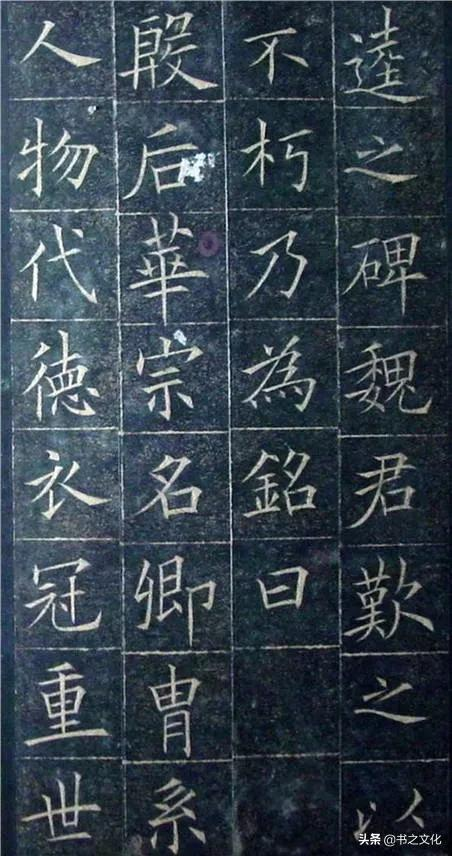 逵之碑魏君歎之以
不朽乃為銘曰
殷后華宗名卿冑系
人物代徳衣冠重世
头条 @书之文化